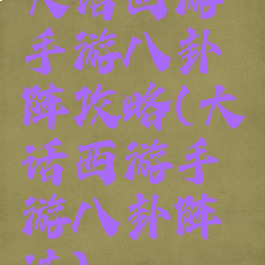 大话西游
手游八卦
阵攻略(大
话西游手
游八卦阵